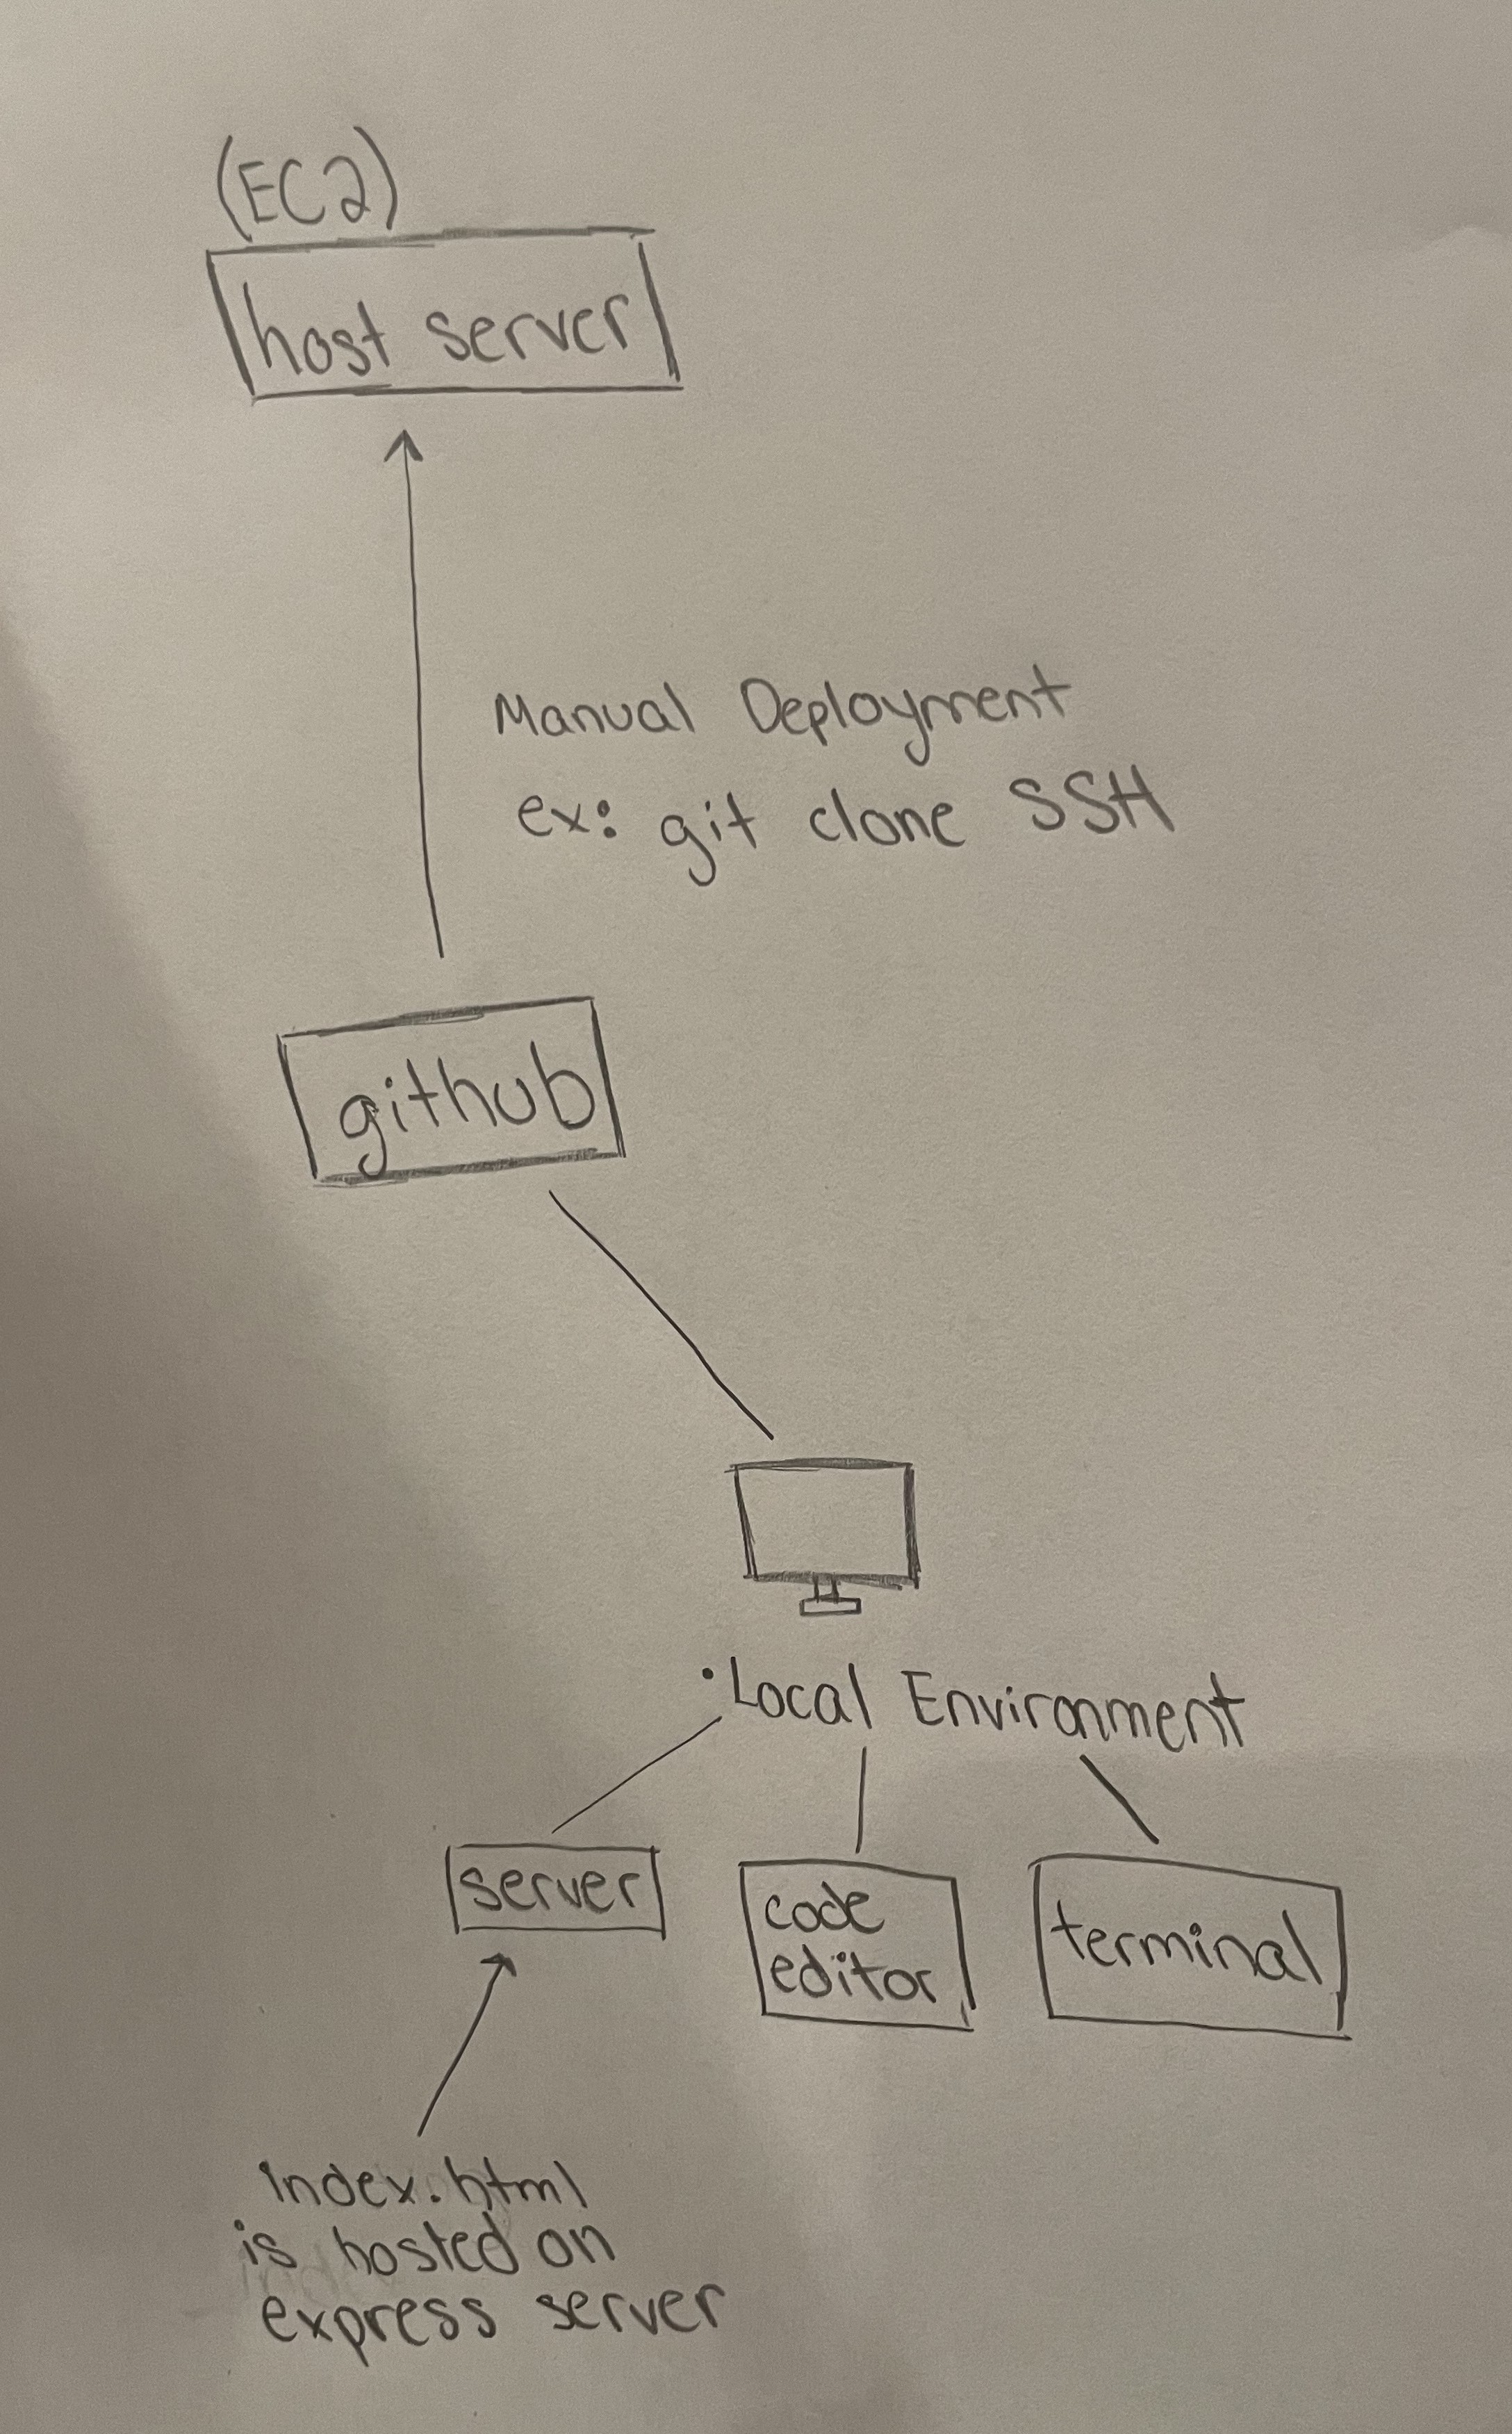 (EC2)
host server
Manual Deployment
ex: git clone SSH
github
• Local Environment
server
code
editor
terminal
index.html
is hosted on
express server